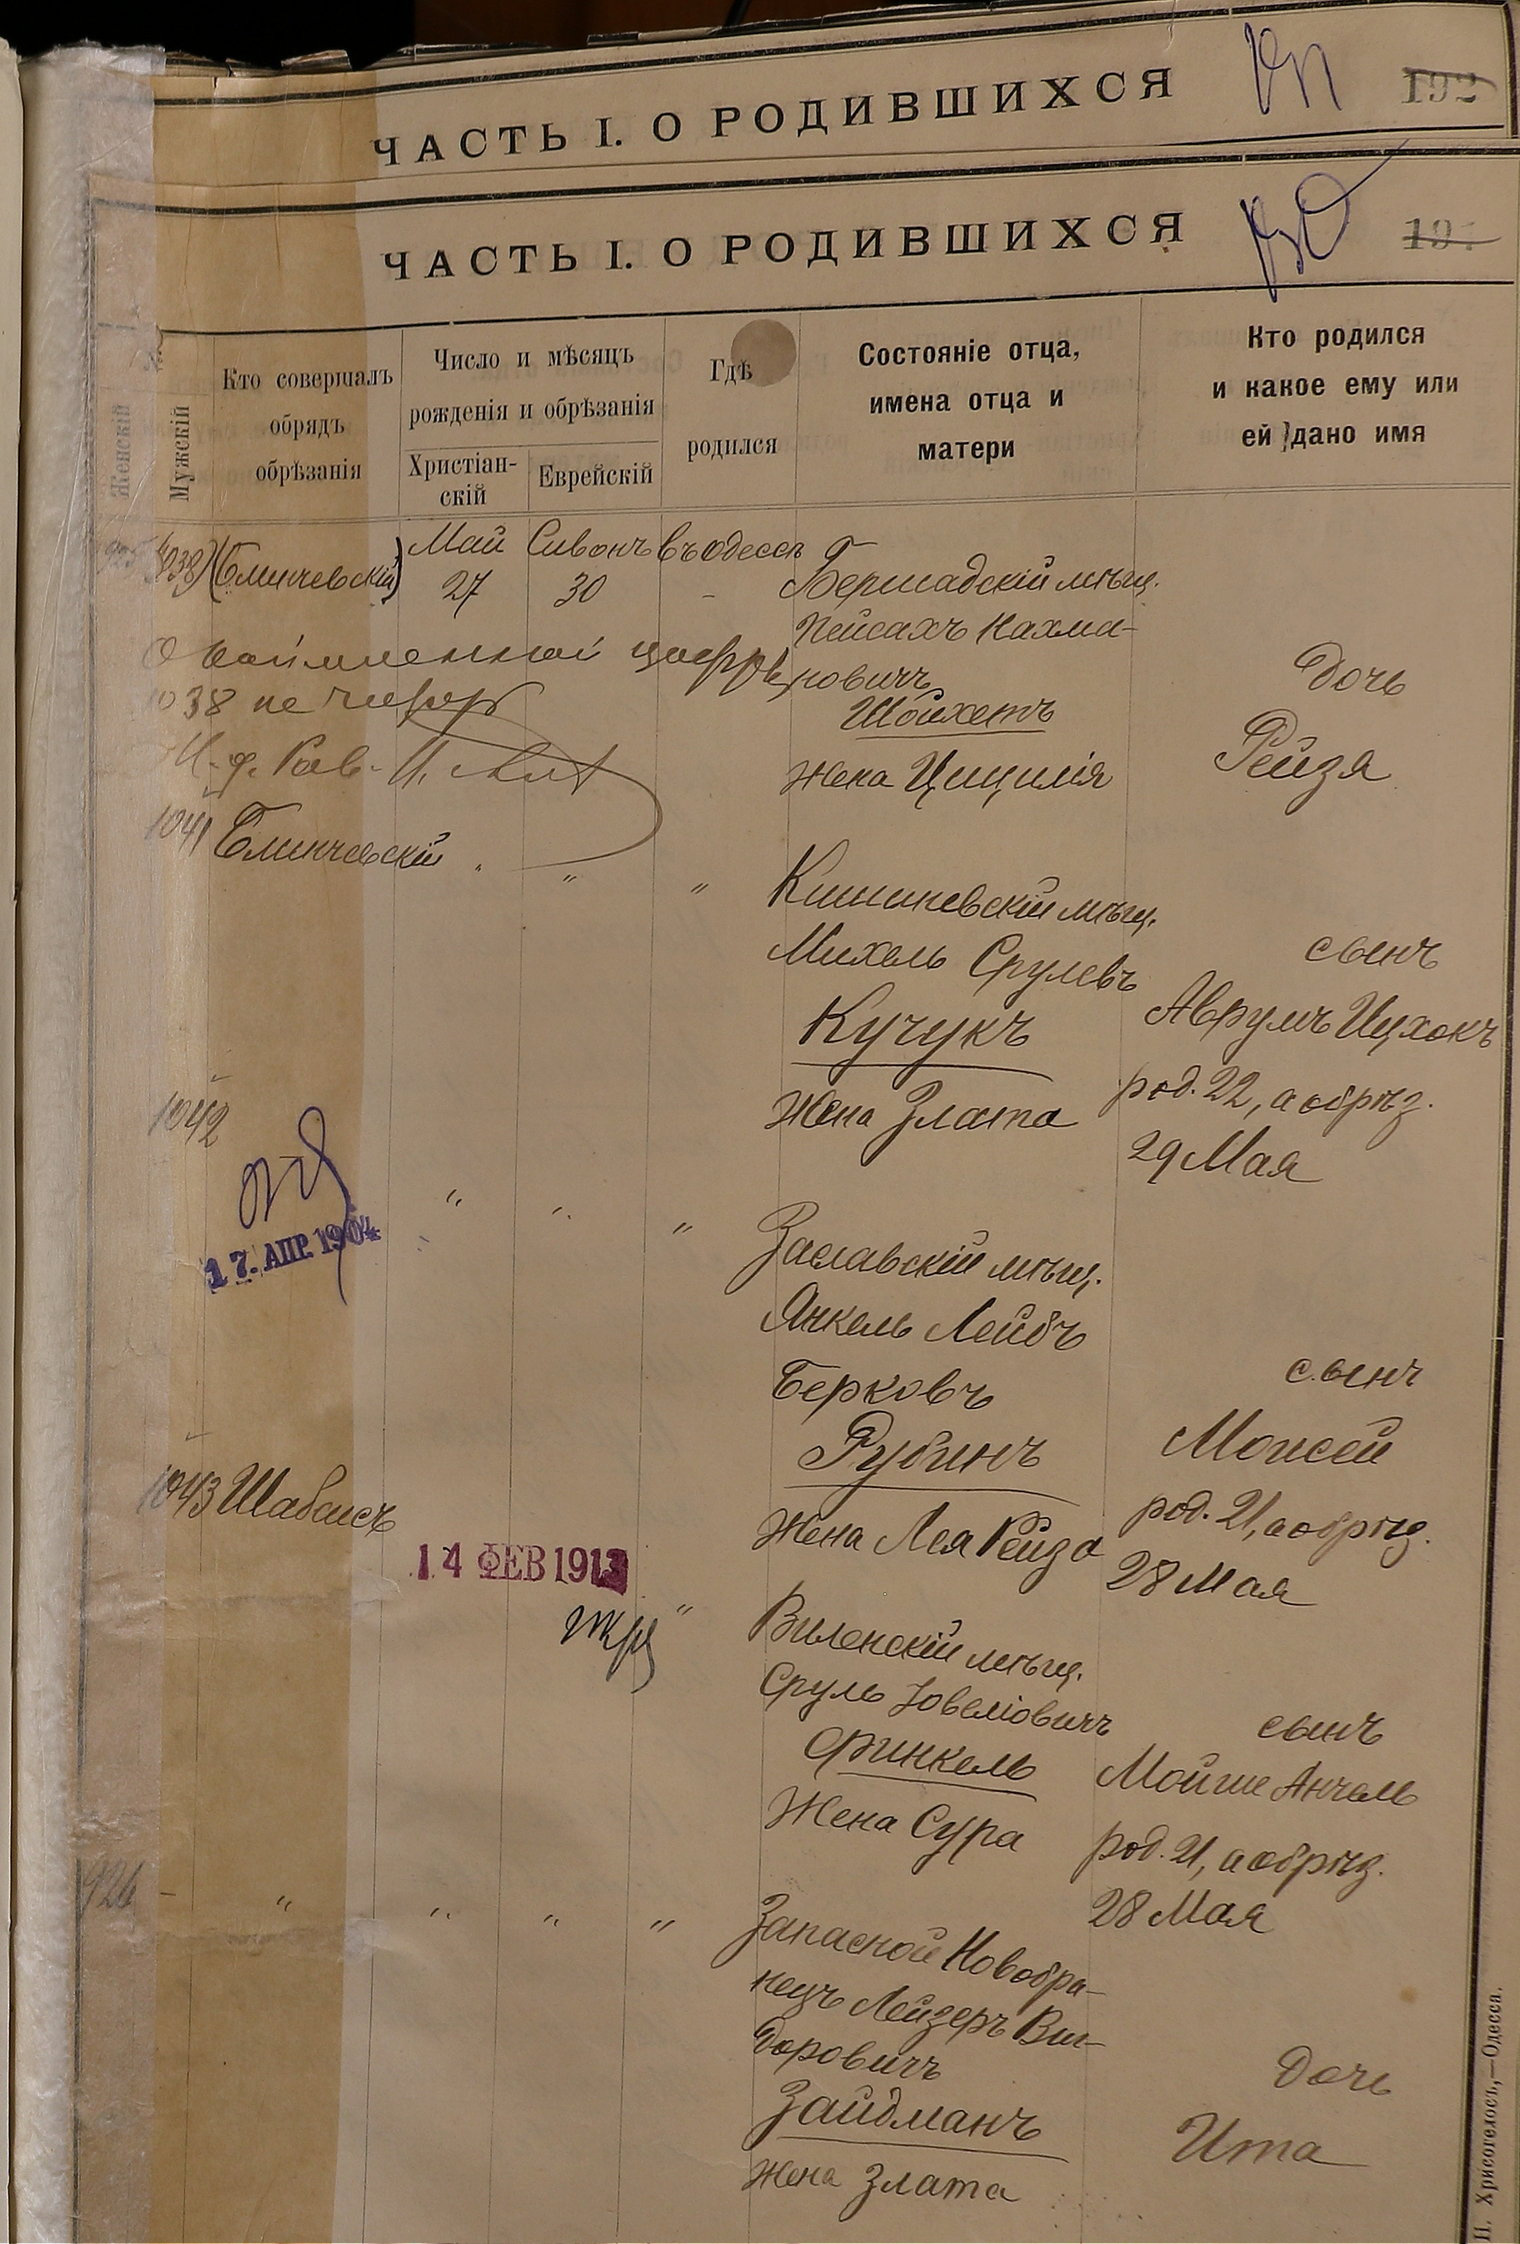 ЧАСТЬ I. О РОДИВШИХСЯ
192
ЧАСТЬ I. О РОДИВШИХСЯ
Женскій
Мужскій
Кто совершалъ
обрядъ
обрѣзанія
Число и мѣсяцъ
рожденія и обрѣзанія
Христіан-
скій
Еврейскій
Гдѣ
родился
Состояніе отца,
имена отца и
матери
Кто родился
и какое ему или
ей дано имя
925 1038 (Блинчевскій)
Май
27
Сивонъ
30
въ Одессѣ
Бершадскій мѣщ.
Пейсахъ Нахма-
новичъ
Шойхетъ
Жена Цицилія
Дочь
Рейзя
цифры
1038 не
1041 Блинчевскій " " "
Кишиневскій мѣщ.
Михель Срулевъ
Кучукъ
Жена Злата
сынъ
Аврумъ Ицхокъ
род. 22, а обрѣз.
29 Мая
1042
17. АПР. 1904
" " "
Заславскій мѣщ.
Янкель Лейбъ
Берковъ
Рубинъ
Жена Лея Рейза
сынъ
Моисей
род. 21, а обрѣз.
28 Мая
1043 Шабаисъ
14 ФЕВ 1913
"
Виленскій мѣщ.
Сруль Іовеліовичъ
Финкель
Жена Сура
сынъ
Мойше Анчель
род. 21, а обрѣз.
28 Мая
926 – " " " "
Запасной Новобра-
нецъ Лейзеръ Виг-
доровичъ
Зайдманъ
Жена Злата
Дочь
Ита
П. Хрисогелосъ,—Одесса.